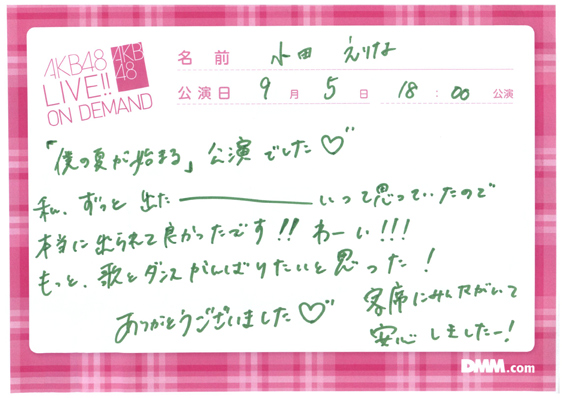 AKB48
LIVE!!
ON DEMAND
AKB
48
名前 小田 えりな
公演日 9月 5日 18:00 公演
「僕の夏が始まる」公演でした♡
私、ずっと出た――――いって思っていたので
本当に出られて良かったです!! わーい!!!
もっと、歌とダンスがんばりたいと思った!
ありがとうございました♡
客席にみんながいて
安心しましたー!
DMM.com